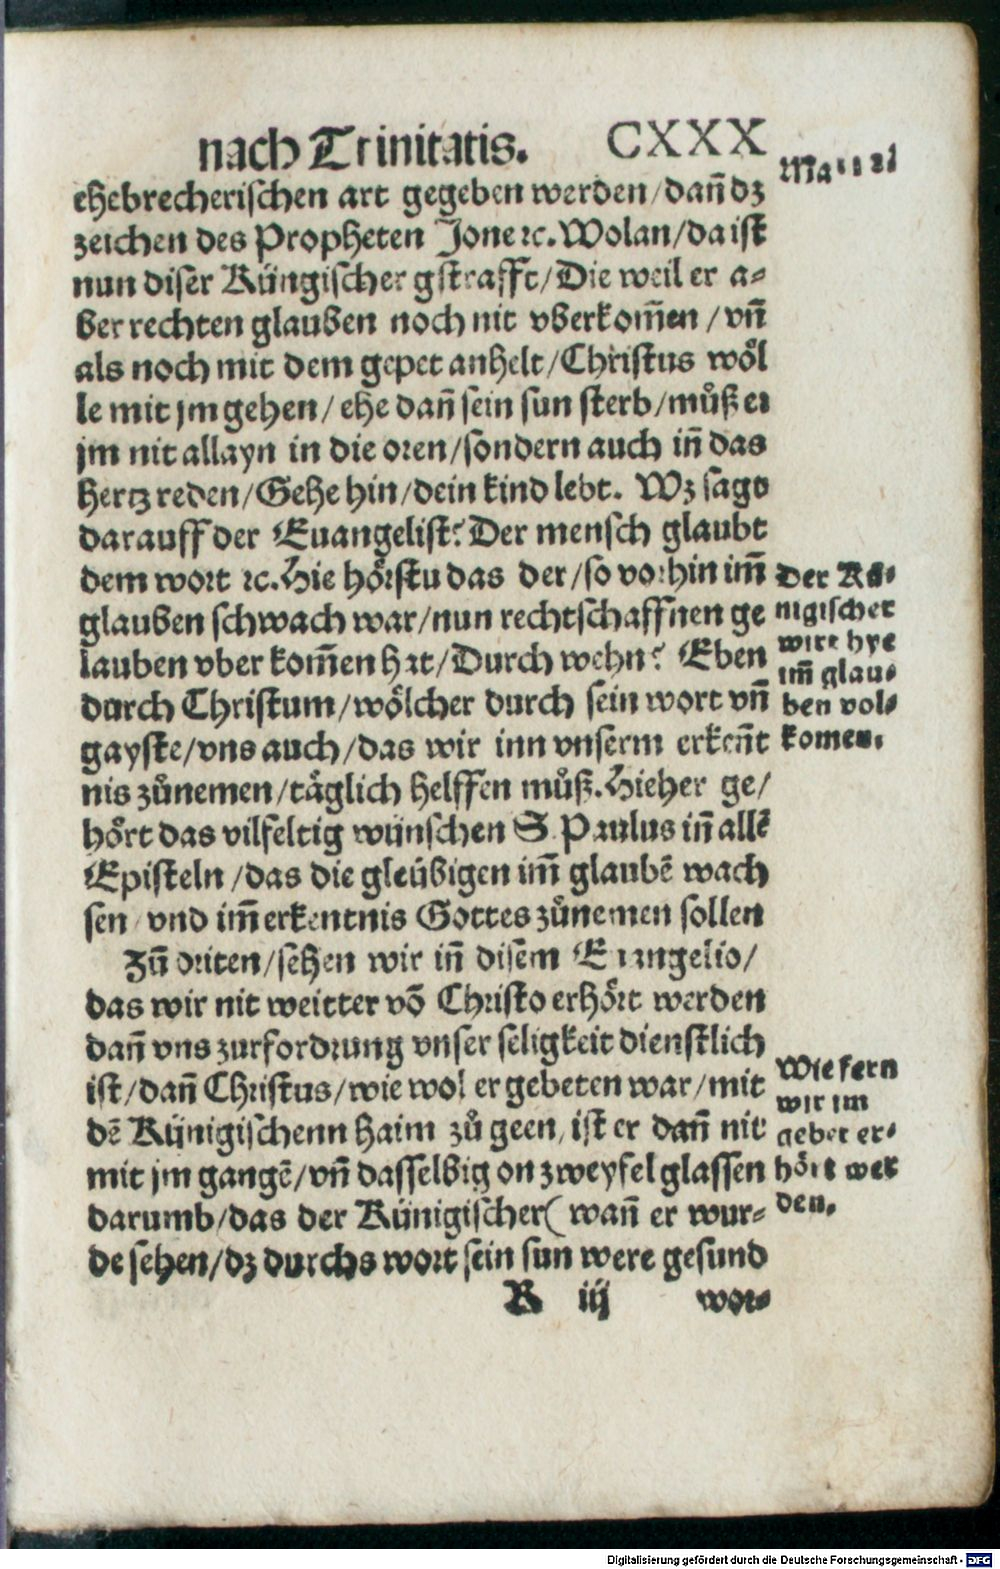 nach Trinitatis. CXXX
ehebrecherischen art gegeben werden/dañ dz
zeichen des Propheten Jone ꝛc. Wolan/da ist
nun diser Küngischer gstrafft/Die weil er a⸗
ber rechten glauben noch nit vberkom̃en/vñ
als noch mit dem gepet anhelt/Christus wöl
le mit jm gehen/ehe dañ sein sun sterb/můß er
jm nit allayn in die oren/sondern auch iñ das
hertz reden/Gehe hin/dein kind lebt. Wz sagt
darauff der Euangelist? Der mensch glaubt
dem wort ꝛc. Hie hörstu das der/so vorhin im̃
glauben schwach war/nun rechtschaffnen ge
lauben vber kom̃en hat/Durch wehn? Eben
durch Christum/wölcher durch sein wort vñ
gayste/vns auch/das wir inn vnserm erkeñt
nis zůnemen/täglich helffen můß. Hieher ge/
hört das vilfeltig wünschen S. Paulus iñ allẽ
Episteln/das die gleübigen im̃ glaubẽ wach
sen/vnd im̃ erkentnis Gottes zůnemen sollen
Zũ driten/sehen wir iñ disem Euangelio/
das wir nit weitter võ Christo erhört werden
dañ vns zurfordrung vnser seligkeit dienstlich
ist/dañ Christus/wie wol er gebeten war/mit
dẽ Künigischenn haim zů geen/ist er dañ nit
mit jm gangẽ/vñ dasselbig on zweyfel glassen
darumb/das der Künigischer( wañ er wur⸗
de sehen/dz durchs wort sein sun were gesund
K iij wor⸗
Der Kü⸗
nigischer
wirt hye
im̃ glau⸗
ben vol⸗
komen.
Wie fern
wir im
gebet er⸗
hört wer
den.
Digitalisierung gefördert durch die Deutsche Forschungsgemeinschaft - DFG